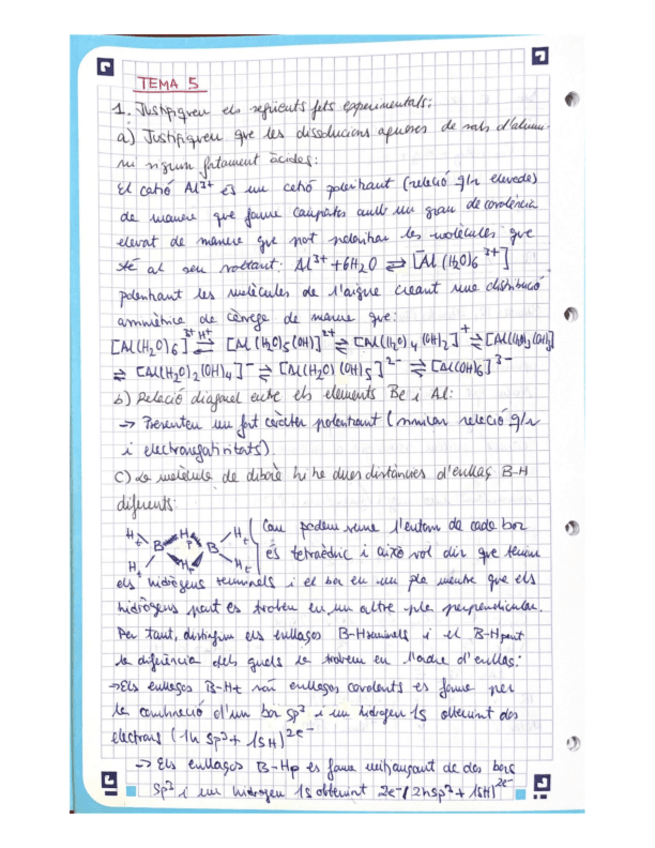 TEMA 5
1. Justifiqueu els següents fets experimentals:
a) Justifiqueu que les dissolucions aquoses de sals d'alumi-
ni siguin fortament àcides:
El catió Al³⁺ és un catió polaritzant (relació q/r elevada)
de manera que forma compostos amb un grau de covalència
elevat de manera que pot polaritzar les molècules que
té al seu voltant: Al³⁺ + 6H₂O ⇌ [Al(H₂O)₆³⁺]
polaritzant les molècules de l'aigua creant una distribució
asimètrica de càrrega de manera que:
[Al(H₂O)₆]³⁺ ⇌ H⁺ [Al(H₂O)₅(OH)]²⁺ ⇌ [Al(H₂O)₄(OH)₂]⁺ ⇌ [Al(H₂O)₃(OH)₃]
⇌ [Al(H₂O)₂(OH)₄]⁻ ⇌ [Al(H₂O)(OH)₅]²⁻ ⇌ [Al(OH)₆]³⁻
b) Relació diagonal entre els elements Be i Al:
→ Presenten un fort caràcter polaritzant (similar relació q/r
i electronegativitats)
c) La molècula de diborà hi ha dues distàncies d'enllaç B-H
diferents:
Ht Hp Ht Com podem veure l'entorn de cada bor
B B és tetraèdric i això vol dir que tenim
Ht Hp Ht
els hidrògens terminals i el bor en un pla mentre que els
hidrògens pont es troben en un altre pla perpendicular.
Per tant, distingim els enllaços B-Hterminals i el B-Hpont
la diferència dels quals la trobem en l'ordre d'enllaç:
→ Els enllaços B-Ht són enllaços covalents es forma per
la combinació d'un bor sp³ i un hidrogen 1s obtenint dos
electrons (1h sp³ + 1sH)²ᵉ⁻
→ Els enllaços B-Hp es forma mitjançant de dos bors
sp³ i un hidrogen 1s obtenint 2e⁻ (2h sp³ + 1sH)²ᵉ⁻